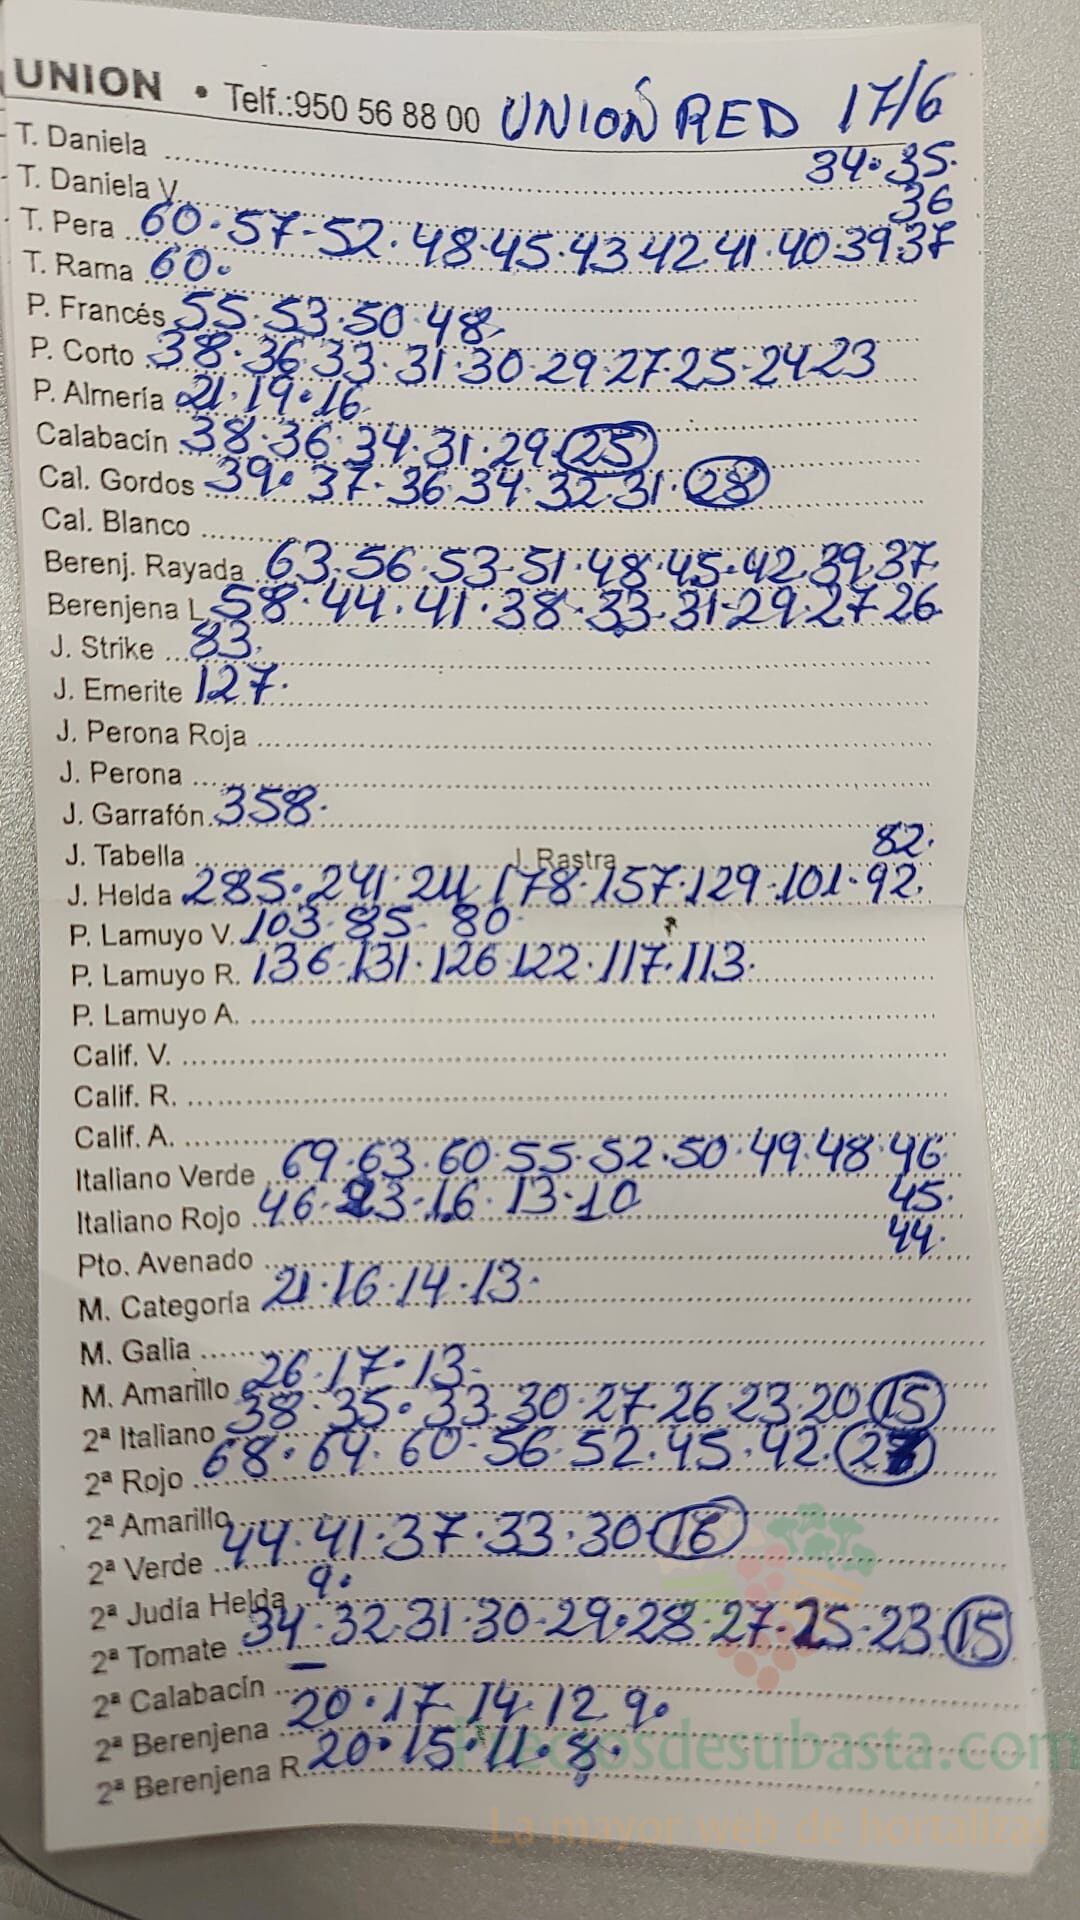 UNION • Telf.:950 56 88 00 UNION RED 17/6
T. Daniela 34·35·
T. Daniela V. 36
T. Pera 60·57·52·48·45·43 42 41·40·39 37
T. Rama 60·
P. Francés 55·53·50·48
P. Corto 38·36·33·31·30·29·27·25·24 23
P. Almería 21·19·16
Calabacín 38·36·34·31·29·25
Cal. Gordos 39·37·36·34·32·31·28
Cal. Blanco
Berenj. Rayada 63·56·53·51·48·45·42·39·37
Berenjena L 58·44·41·38·33·31·29·27·26
J. Strike 83
J. Emerite 127·
J. Perona Roja
J. Perona
J. Garrafón 358·
J. Tabella J. Rastra 82·
J. Helda 285·241·211·178·157·129·101·92·
P. Lamuyo V. 103·85·80
P. Lamuyo R. 136·131·126·122·117·113·
P. Lamuyo A.
Calif. V.
Calif. R.
Calif. A.
Italiano Verde 69·63·60·55·52·50·49·48·46
Italiano Rojo 46·23·16·13·10 45·
Pto. Avenado 44·
M. Categoría 21·16·14·13·
M. Galia
M. Amarillo 26·17·13·
2ª Italiano 38·35·33·30·27·26·23·20 15
2ª Rojo 68·64·60·56·52·45·42·27
2ª Amarillo
2ª Verde 44·41·37·33·30·16
2ª Judía Helda 9·
2ª Tomate 34·32·31·30·29·28·27·25·23·15
2ª Calabacín —
2ª Berenjena 20·17·14·12·9·
2ª Berenjena R. 20·15·11·8·
Preciosdesubasta.com
La mayor web de hortalizas